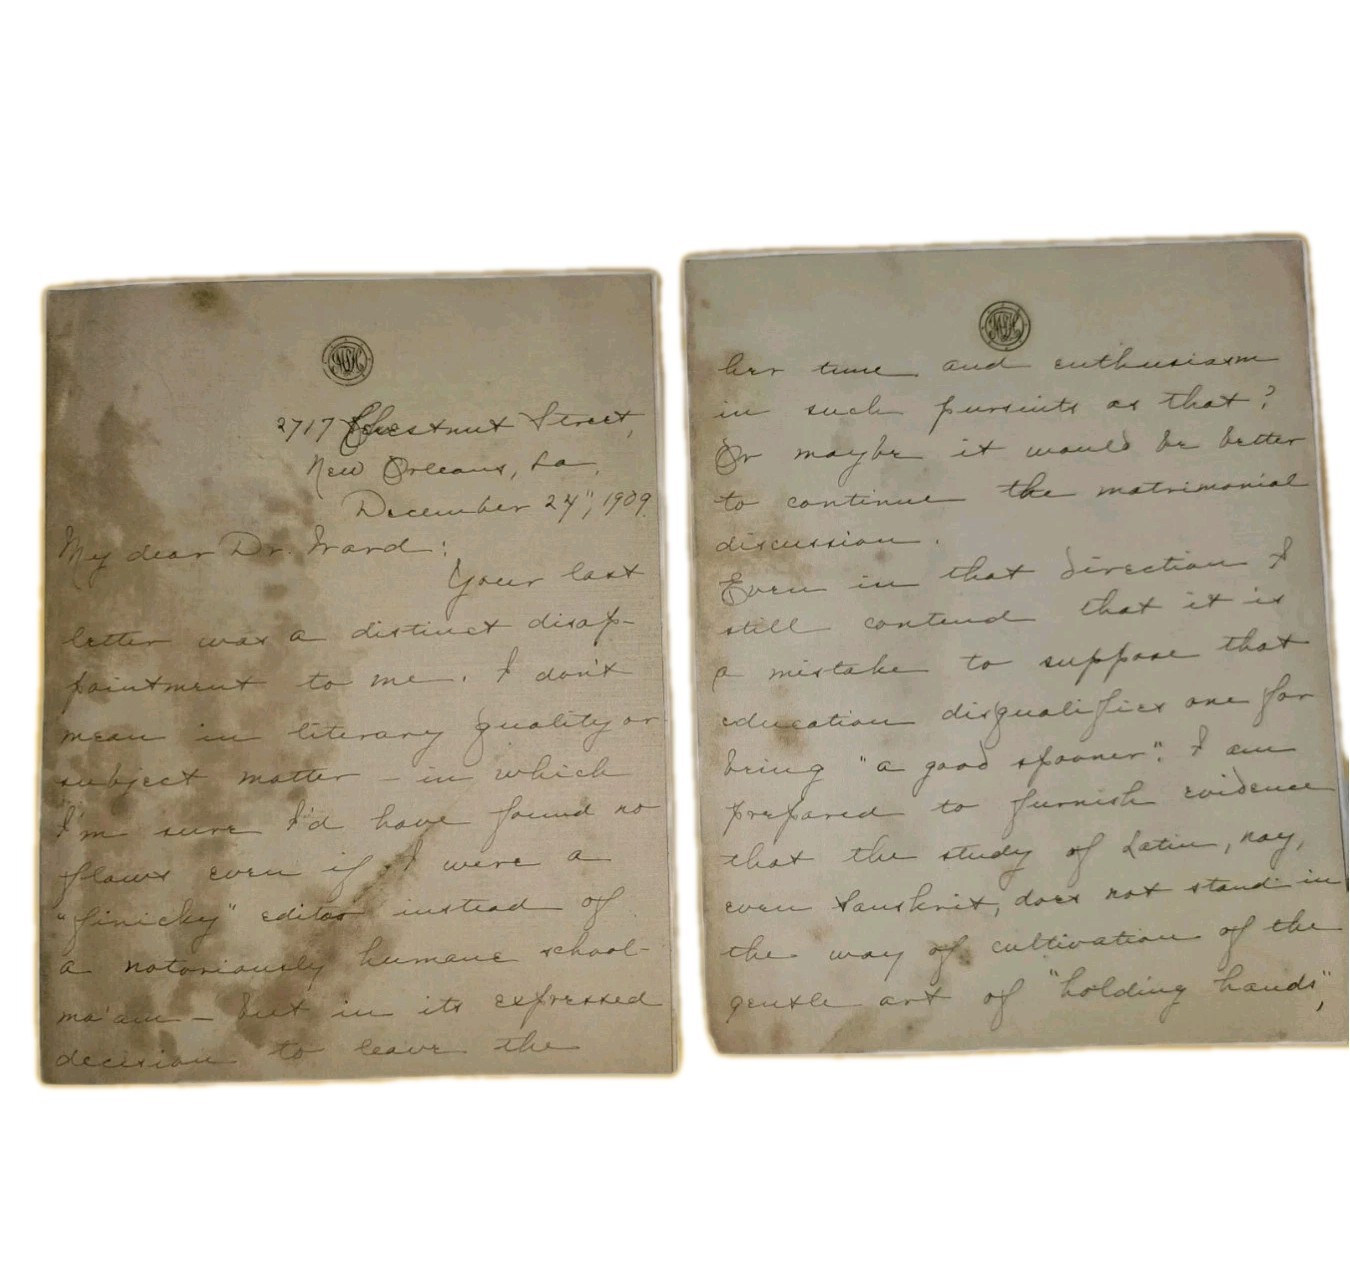 2717 Chestnut Street,
New Orleans, La,
December 24", 1909.
My dear Dr. Ward:
Your last
letter was a distinct disap-
pointment to me. I don't
mean in literary quality or
subject matter - in which
I'm sure I'd have found no
flaws even if I were a
"finicky" editor instead of
a notoriously humane school-
ma'am - but in its expressed
decision to leave the
her time and enthusiasm
in such pursuits as that?
Or maybe it would be better
to continue the matrimonial
discussion.
Even in that direction I
still contend that it is
a mistake to suppose that
education disqualifies one for
being "a good spooner". I am
prepared to furnish evidence
that the study of Latin, nay,
even Sanskrit, does not stand in
the way of cultivation of the
gentle art of "holding hands",